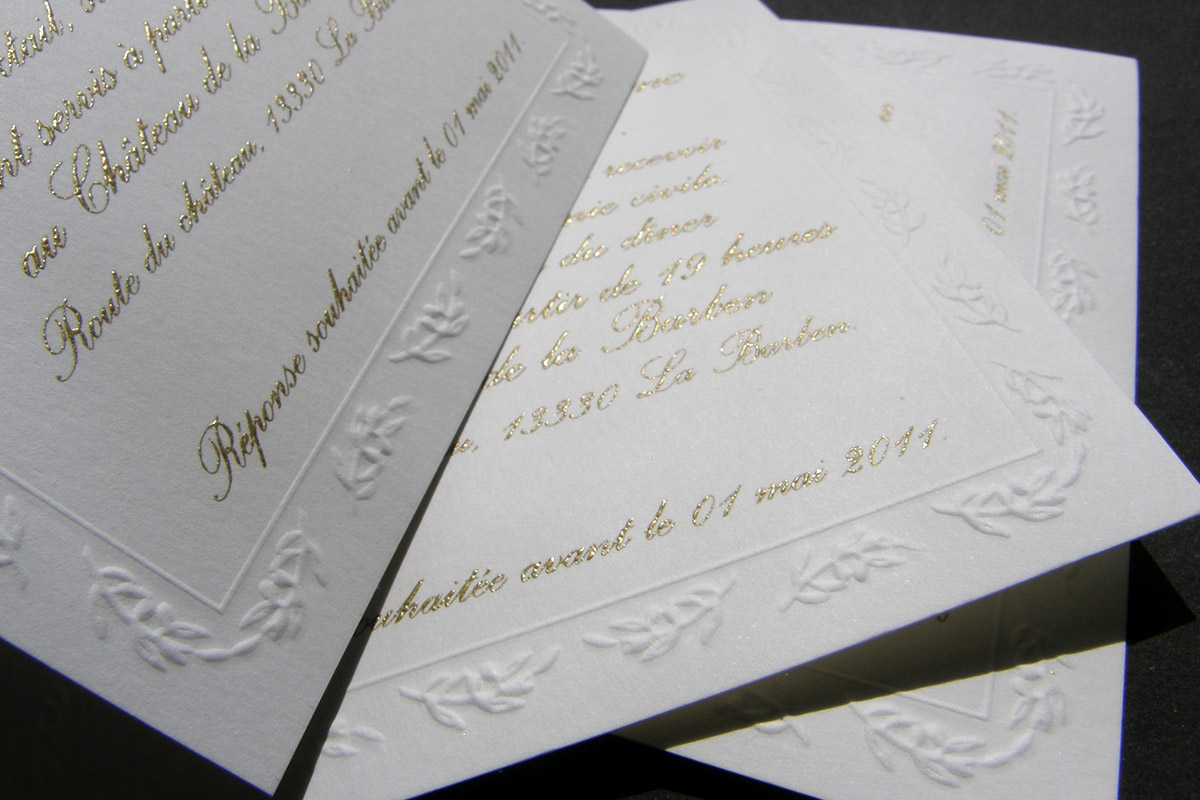 servis à
au Château de la
Route du château, 13330 La
Réponse souhaitée avant le 01 mai 2011.
recevoir
civile.
du dîner
de 19 heures
de la Barben
13330 La Barben.
avant le 01 mai 2011.
01 mai 2011.